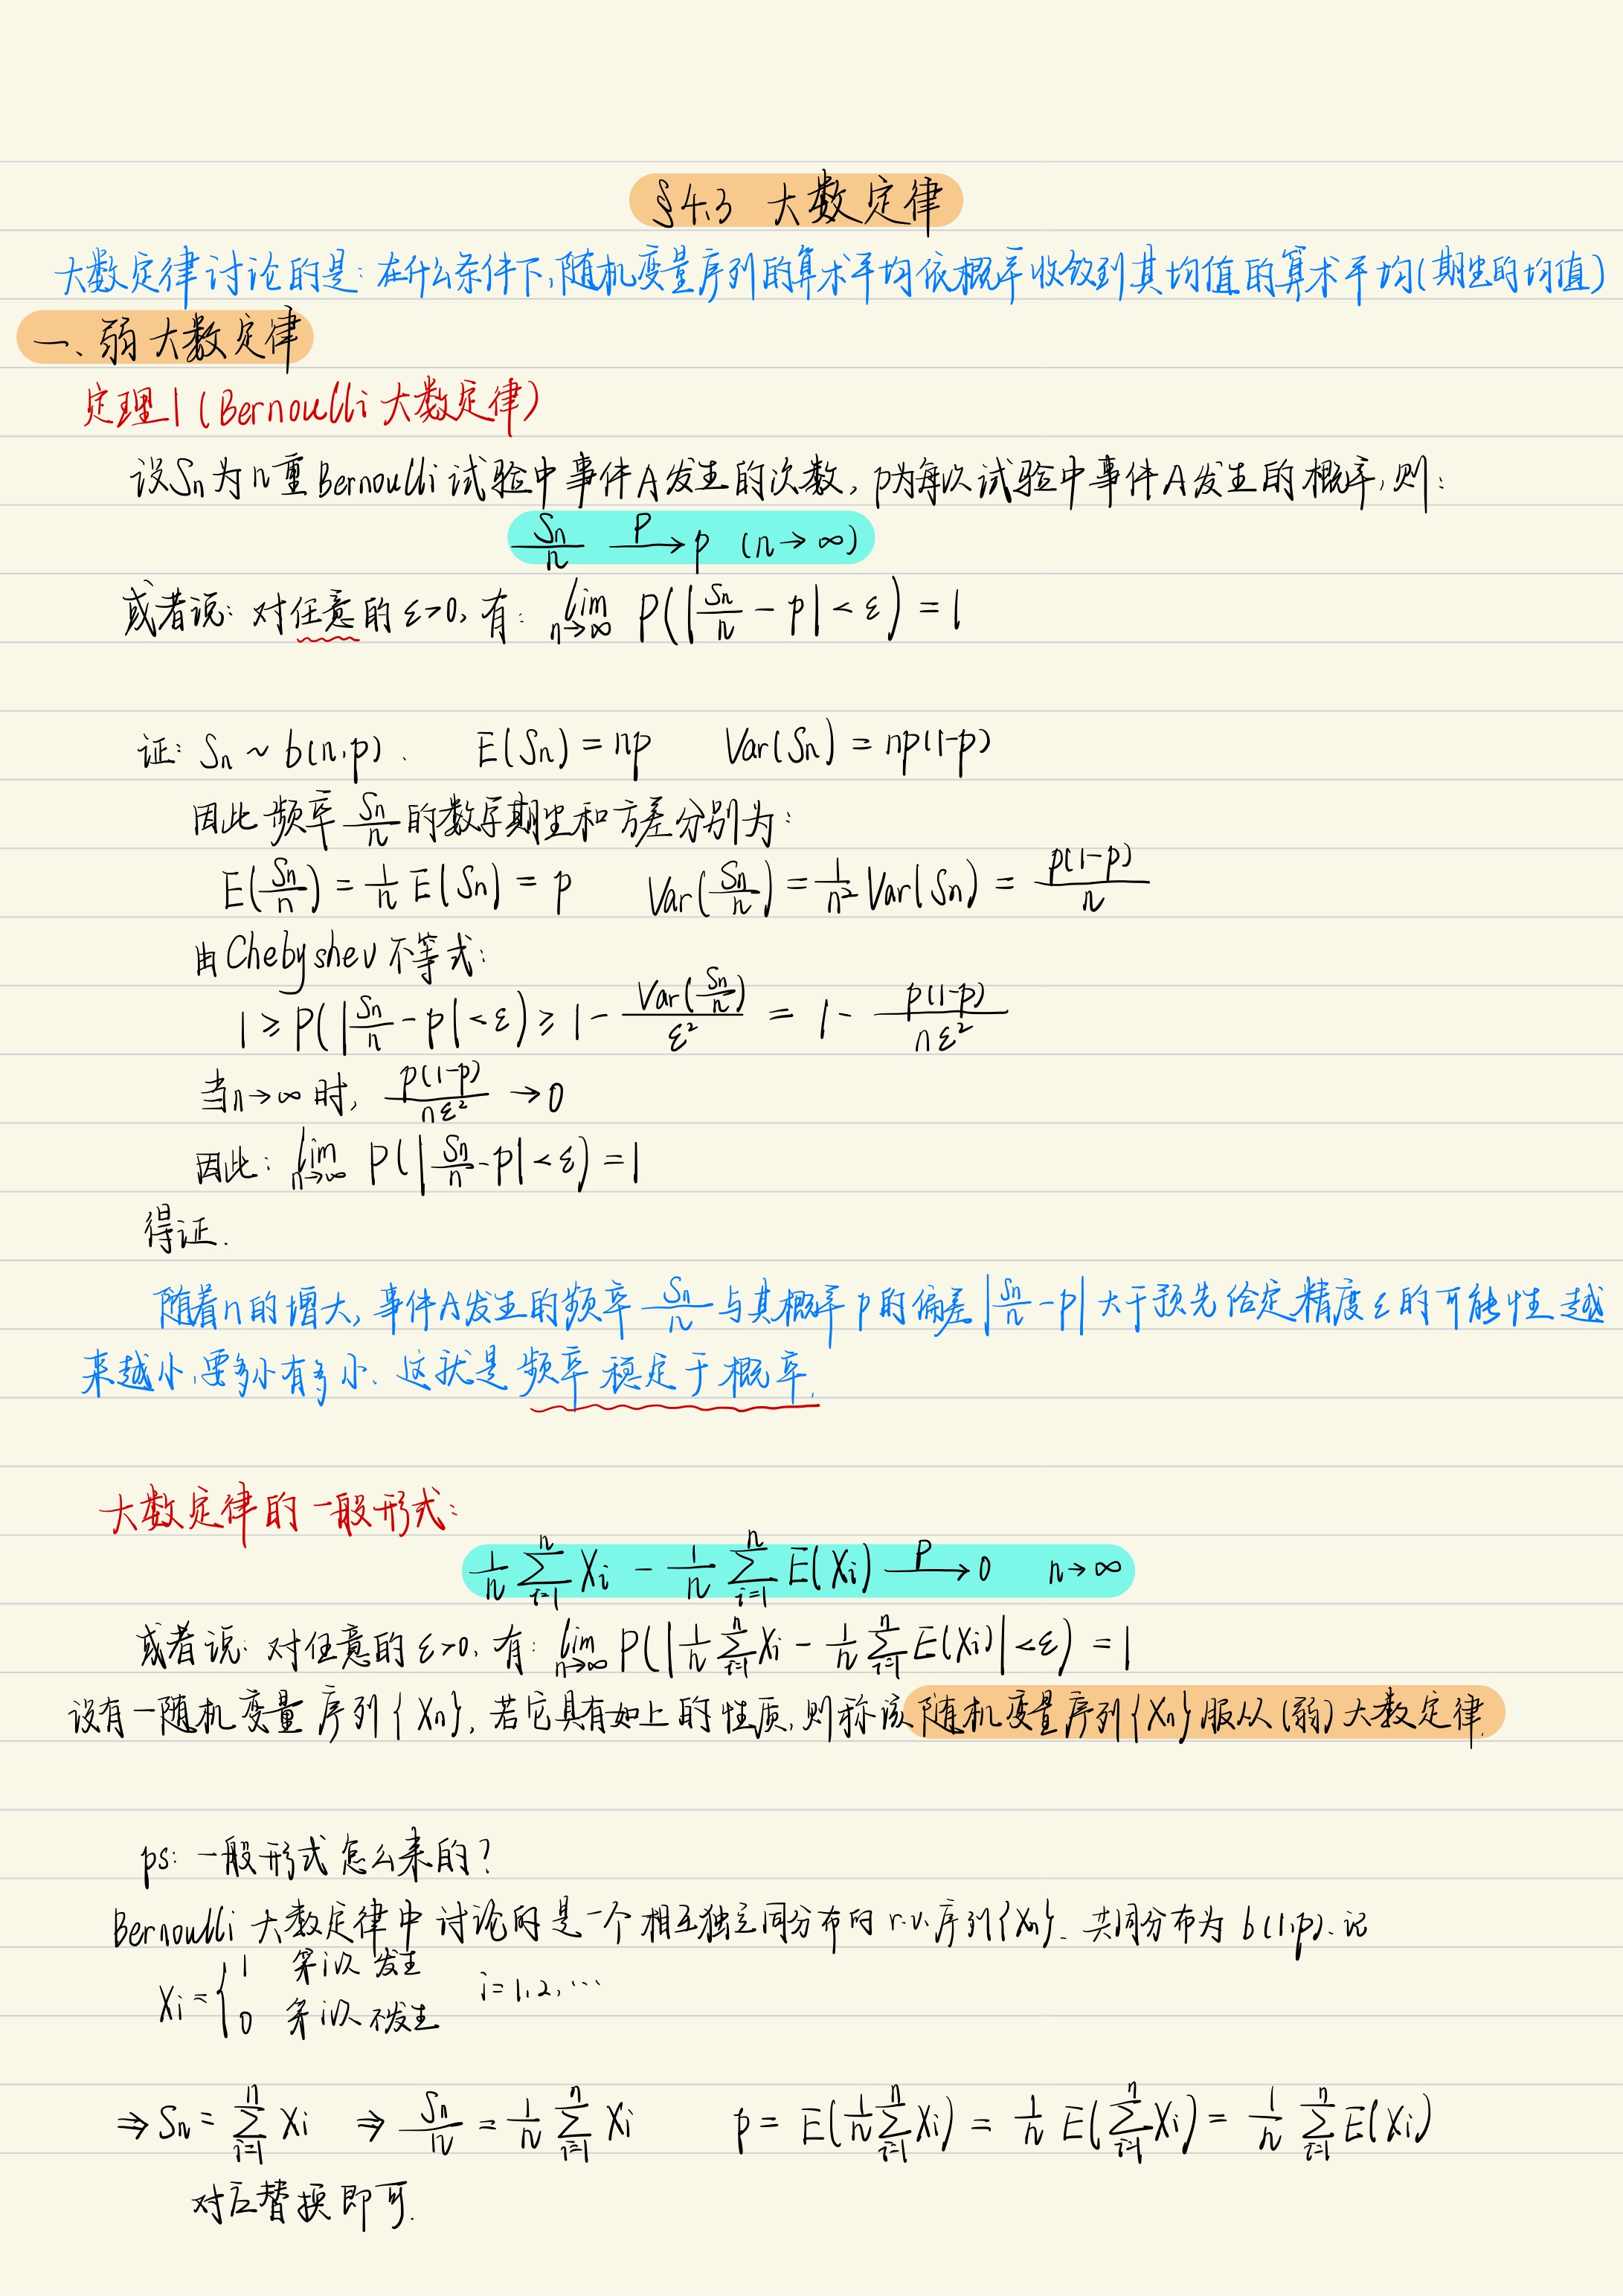 §4.3 大数定律
大数定律讨论的是: 在什么条件下, 随机变量序列的算术平均依概率收敛到其均值的算术平均(期望的均值)
一、弱大数定律
定理1 (Bernoulli 大数定律)
设Sn为n重Bernoulli试验中事件A发生的次数, p为每次试验中事件A发生的概率, 则:
Sn/n —P→ p (n→∞)
或者说: 对任意的 ε>0, 有: lim n→∞ P(|Sn/n - p| < ε) = 1
证: Sn ~ b(n,p). E(Sn) = np Var(Sn) = np(1-p)
因此频率 Sn/n 的数学期望和方差分别为:
E(Sn/n) = 1/n E(Sn) = p Var(Sn/n) = 1/n² Var(Sn) = p(1-p)/n
由Chebyshev不等式:
1 ≥ P(|Sn/n - p| < ε) ≥ 1 - Var(Sn/n)/ε² = 1 - p(1-p)/nε²
当n→∞时, p(1-p)/nε² → 0
因此: lim n→∞ P(|Sn/n - p| < ε) = 1
得证.
随着n的增大, 事件A发生的频率 Sn/n 与其概率 p 的偏差 |Sn/n - p| 大于预先给定精度 ε 的可能性越
来越小, 要多小有多小. 这就是频率稳定于概率.
大数定律的一般形式:
1/n ∑ⁿᵢ₌₁ Xi - 1/n ∑ⁿᵢ₌₁ E(Xi) —P→ 0 n→∞
或者说: 对任意的 ε>0, 有: lim n→∞ P(|1/n ∑ⁿᵢ₌₁ Xi - 1/n ∑ⁿᵢ₌₁ E(Xi)| < ε) = 1
设有一随机变量序列{Xn}, 若它具有如上的性质, 则称该随机变量序列{Xn}服从(弱)大数定律.
ps: 一般形式怎么来的?
Bernoulli 大数定律中讨论的是一个相互独立同分布的 r.v. 序列{Xn}、共同分布为 b(1,p). 记
Xi = { 1 第i次发生
0 第i次不发生 i=1,2,…
⇒ Sn = ∑ⁿᵢ₌₁ Xi ⇒ Sn/n = 1/n ∑ⁿᵢ₌₁ Xi p = E(1/n ∑ⁿᵢ₌₁ Xi) = 1/n E(∑ⁿᵢ₌₁ Xi) = 1/n ∑ⁿᵢ₌₁ E(Xi)
对应替换即可.